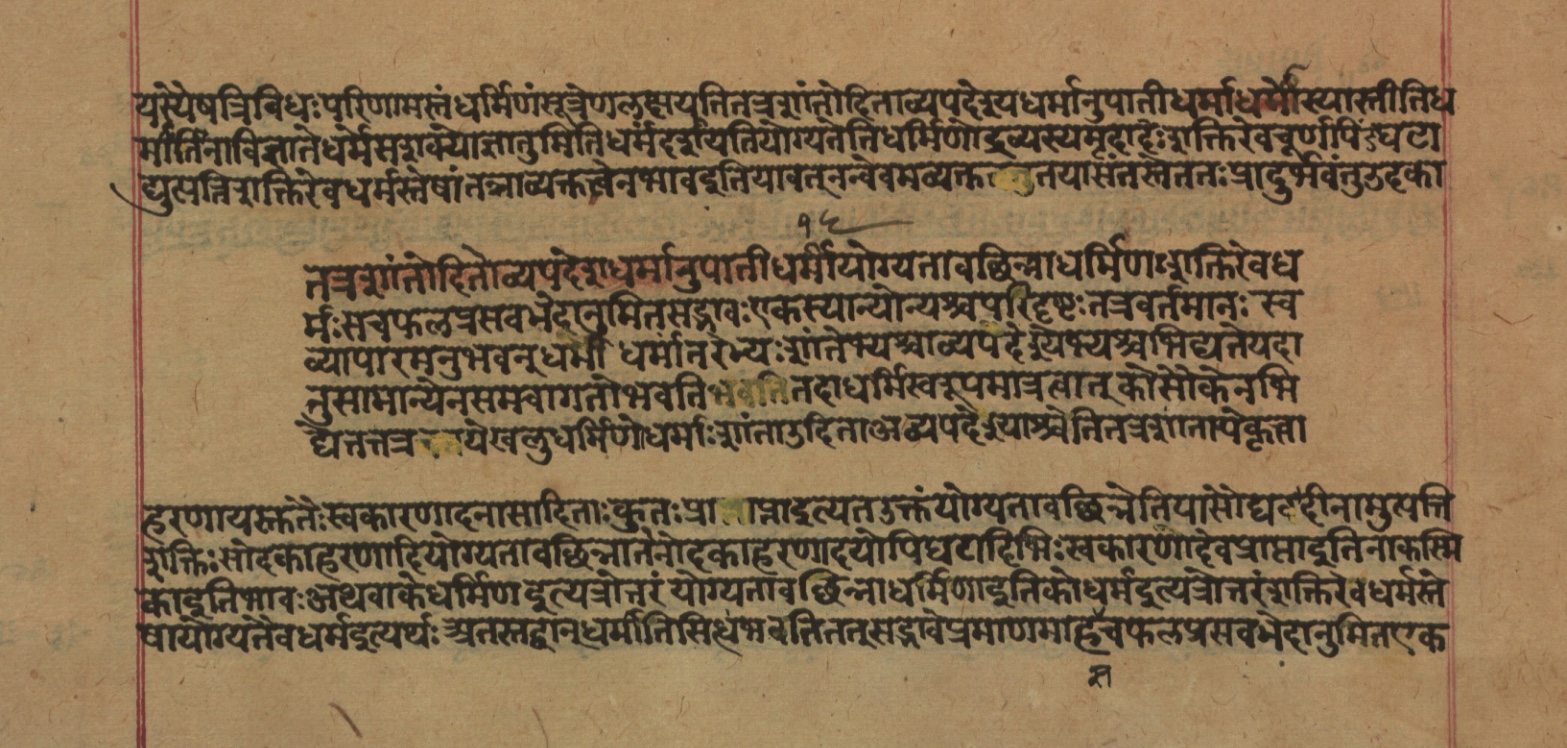 यस्यैषत्रिविधः परिणामस्तं धर्मिणं सूत्रेण लक्षयति तत्र शांतोदिताव्यपदेश्यधर्मानुपाती धर्मी धर्मोस्यास्तीति ध
र्मीति नाविज्ञाते धर्मे स शक्यो ज्ञातुमिति धर्मं दर्शयति योग्यतेति धर्मिणो द्रव्यस्य मृदादेः शक्तिरेव चूर्णपिंडघटा
द्युत्पत्तिशक्तिरेव धर्मस्तेषां तत्राव्यक्तत्वेन भाव इति यावत् नन्वेवमव्यक्त तया संतस्ते ततः प्रादुर्भवंतु उदका
१४
तत्र शांतोदितोव्यपदेशधर्मानुपाती धर्मी योग्यतावछिन्ना धर्मिणः शक्तिरेव ध
र्मः स च फलप्रसवभेदानुमितसद्भावः एकस्यान्योन्यश्च परिदृष्टः तत्र वर्तमानः स्व
व्यापारमनुभवन् धर्मी धर्मांतरेभ्यः शांतेभ्यश्चाव्यपदेश्येभ्यश्च भिद्यते यदा
तु सामान्येन समन्वागतो भवति भवति तदा धर्मिस्वरूपमात्रत्वात् कोसौ केन भि
द्येत तत्र ये खलु धर्मिणो धर्माः शांता उदिता अव्यपदेश्याश्चेति तत्र शांता ये कृत्वा
हरणादयस्तु तैः स्वकारणादनासादिताः कुतः प्रा प्ता इत्यत उक्तं योग्यतावछिन्नेति यासौ घटादीनामुत्पत्ति
शक्तिः सोदकाहरणादियोग्यतावछिन्ना तेनोदकाहरणादयोपि घटादिभिः स्वकारणादेव प्राप्ता इति नाकस्मि
का इति भावः अथवा के धर्मिण इत्यत्रोत्तरं योग्यतावछिन्ना धर्मिण इति को धर्म इत्यत्रोत्तरं शक्तिरेव धर्मस्ते
षां योग्यतैव धर्म इत्यर्थः अतस्तद्वान् धर्मीति सिद्धं भवति तत् सद्भावे प्रमाणमाह च फलप्रसवभेदानुमित एक
स